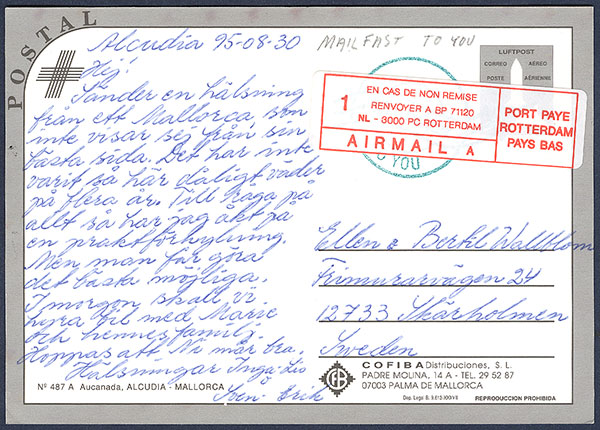 POSTAL
Alcudia 95-08-30
MAILFAST TO YOU
Hej!
Sänder en hälsning
från ett Mallorca som
inte visar sej från sin
bästa sida. Det har inte
varit så här dåligt väder
på flera år. Till råga på
allt så har jag åkt på
en praktförkylning.
Men man får göra
det bästa möjliga.
I morgon skall vi
hyra bil med Marie
och hennes familj.
Hoppas att Ni mår bra.
Hälsningar Inga-Lis
o
Sven-Erik
LUFTPOST
CORREO AÉREO
POSTE AÉRIENNE
1
EN CAS DE NON REMISE
RENVOYER A BP 71120
NL - 3000 PC ROTTERDAM
AIRMAIL A
PORT PAYE
ROTTERDAM
PAYS BAS
O YOU
Ellen o Bertil Wallblom
Frimurarvägen 24
12733 Skärholmen
Sweden
COFIBA Distribuciones, S. L.
PADRE MOLINA, 14 A - TEL. 29 52 87
07003 PALMA DE MALLORCA
REPRODUCCION PROHIBIDA
Nº 487 A Aucanada, ALCUDIA - MALLORCA